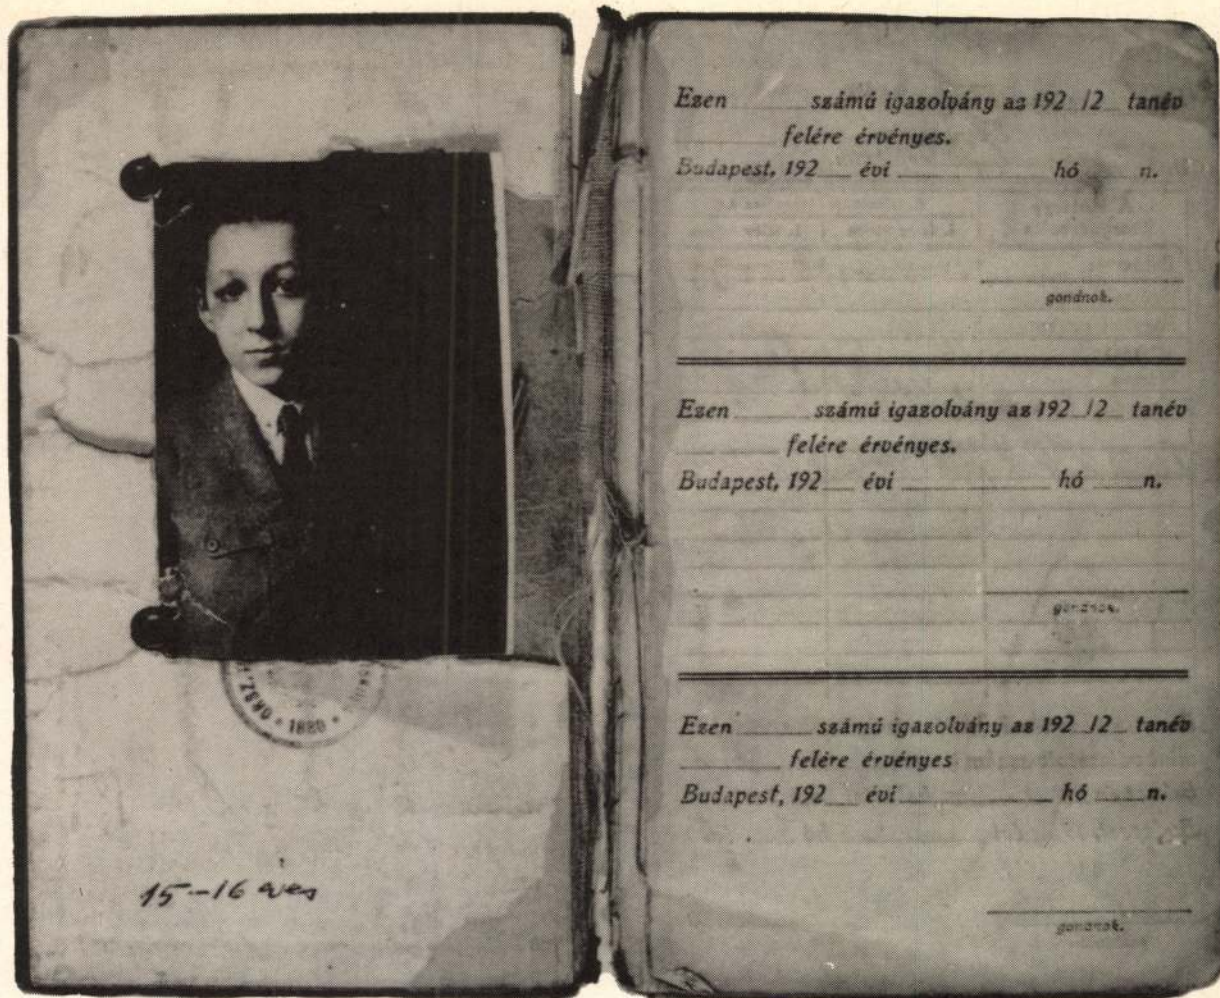 ORSZ.
1880
15-16 éves
Ezen számú igazolvány az 192 /2 tanév
felére érvényes.
Budapest, 192 évi hó n.
gondnok.
Ezen számú igazolvány az 192 /2 tanév
felére érvényes.
Budapest, 192 évi hó n.
gondnok.
Ezen számú igazolvány az 192 /2 tanév
felére érvényes
Budapest, 192 évi hó n.
gondnok.